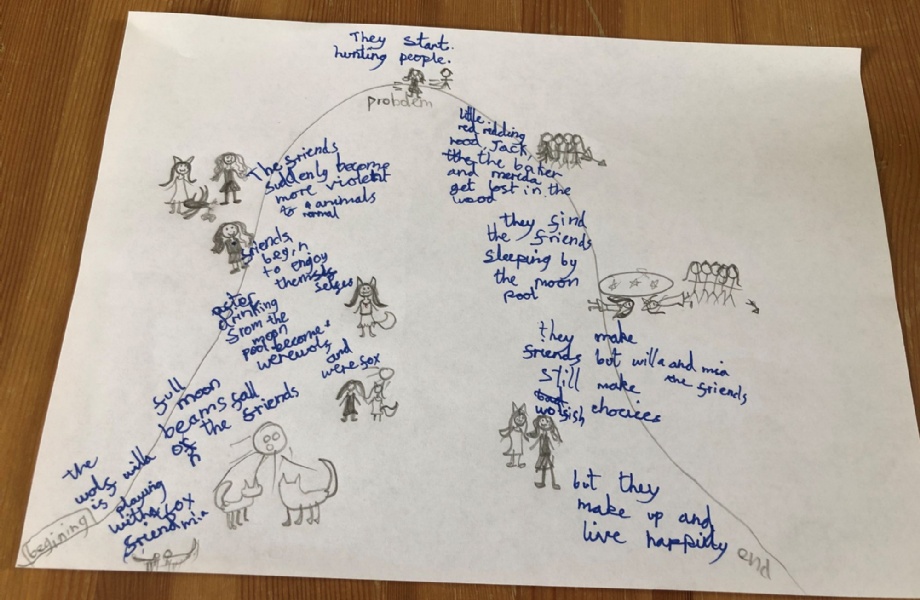 They start.
hunting people.
probdem
begining
the
wolf willa
is playing
with fox
friend mia
full moon
beams fall
of the friends
after
drinking
from the
moon
pool become
werewols and
were fox
friends,
begin
to enjoy
themselfs
The friends
suddenly become
more violent
to animals
normal
little
red ridding
hood, Jack,
the the baker
and merida
get lost in the
wood
they find
the friends
sleeping by
the moon
pool
they make
friends but willa and mia
the friends
still make
wolfish chocices
but they
make up and
live happily
end